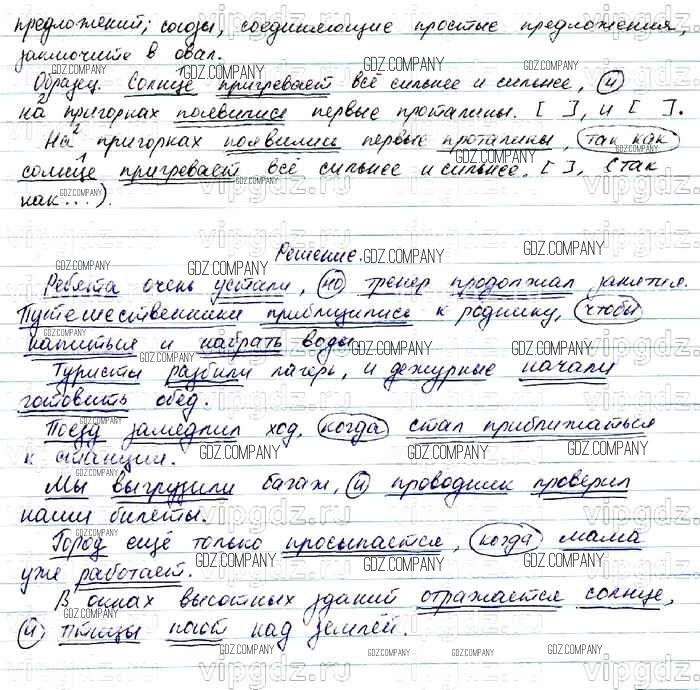 предложений; союзы, соединяющие простые предложения,
заключите в овал.
Образец. Солнце пригревает всё сильнее и сильнее, и
на пригорках появились первые проталины. [ ], и [ ].
На пригорках появились первые проталины, так как
солнце пригревает всё сильнее и сильнее. [ ], (так
как...).
Решение.
Ребята очень устали, но тренер продолжал занятия.
Путешественники приблизились к роднику, чтобы
напиться и набрать воды
Туристы разбили лагерь, и дежурные начали
готовить обед.
Поезд замедлил ход, когда стал приближаться
к станции.
Мы выгрузили багаж, и проводник проверил
наши билеты.
Город ещё только просыпается, когда мама
уже работает.
В окнах высотных зданий отражается солнце,
и птицы поют над землёй.